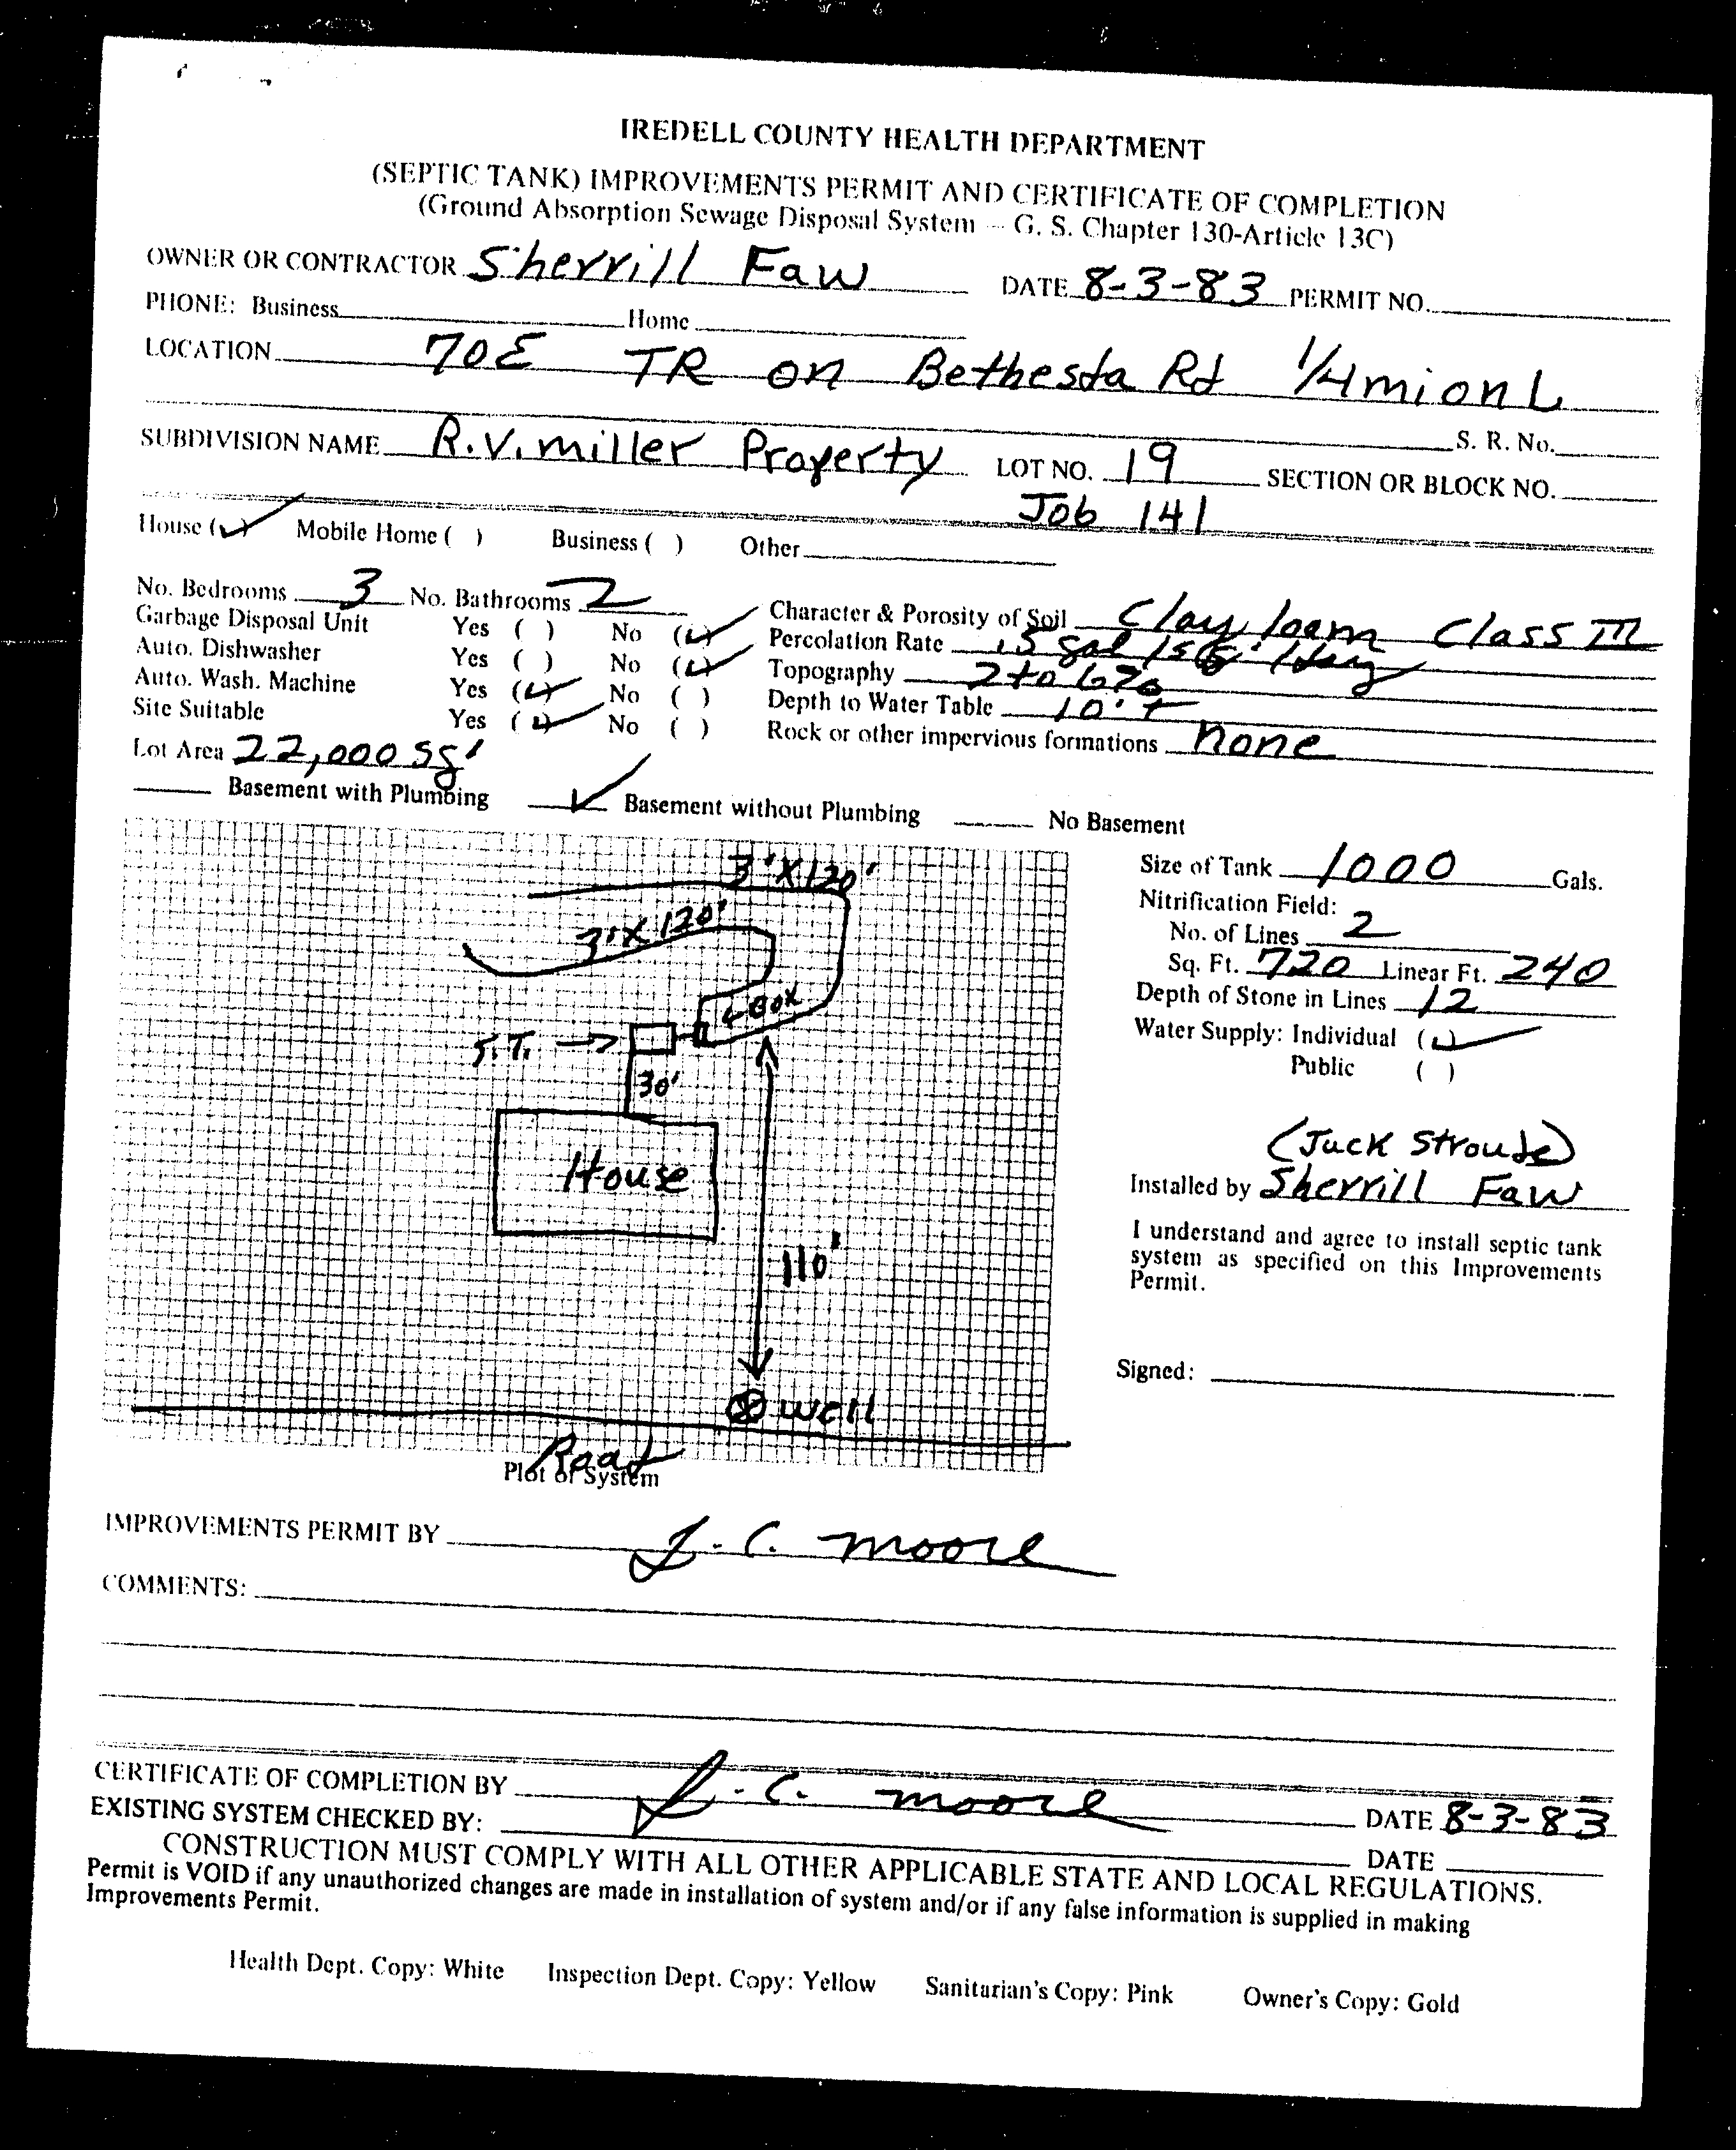 IREDELL COUNTY HEALTH DEPARTMENT
(SEPTIC TANK) IMPROVEMENTS PERMIT AND CERTIFICATE OF COMPLETION
(Ground Absorption Sewage Disposal System -- G. S. Chapter 130-Article 13C)
OWNER OR CONTRACTOR Sherrill Faw DATE 8-3-83 PERMIT NO.
PHONE: Business Home
LOCATION 70E TR on Bethesda Rd 1/4 mi on L
S. R. No.
SUBDIVISION NAME R.V. Miller Property LOT NO. 19 SECTION OR BLOCK NO.
Job 141
House (✓) Mobile Home ( ) Business ( ) Other
No. Bedrooms 3 No. Bathrooms 2 Character & Porosity of Soil Clay loam Class III
Garbage Disposal Unit Yes ( ) No (✓) Percolation Rate .15 gal /sq' /day
Auto. Dishwasher Yes ( ) No (✓) Topography 2 to 6%
Auto. Wash. Machine Yes (✓) No ( ) Depth to Water Table 10' +
Site Suitable Yes (✓) No ( ) Rock or other impervious formations none
Lot Area 22,000 sq'
Basement with Plumbing ✓ Basement without Plumbing No Basement
3' X 120'
3' X 120'
Box
S.T.
30'
House
110'
well
Road
Plot of System
Size of Tank 1000 Gals.
Nitrification Field:
No. of Lines 2
Sq. Ft. 720 Linear Ft. 240
Depth of Stone in Lines 12
Water Supply: Individual (✓)
Public ( )
(Jack Stroude)
Installed by Sherrill Faw
I understand and agree to install septic tank
system as specified on this Improvements
Permit.
Signed:
IMPROVEMENTS PERMIT BY J. C. Moore
COMMENTS:
CERTIFICATE OF COMPLETION BY J. C. Moore DATE 8-3-83
EXISTING SYSTEM CHECKED BY: DATE
CONSTRUCTION MUST COMPLY WITH ALL OTHER APPLICABLE STATE AND LOCAL REGULATIONS.
Permit is VOID if any unauthorized changes are made in installation of system and/or if any false information is supplied in making
Improvements Permit.
Health Dept. Copy: White Inspection Dept. Copy: Yellow Sanitarian's Copy: Pink Owner's Copy: Gold